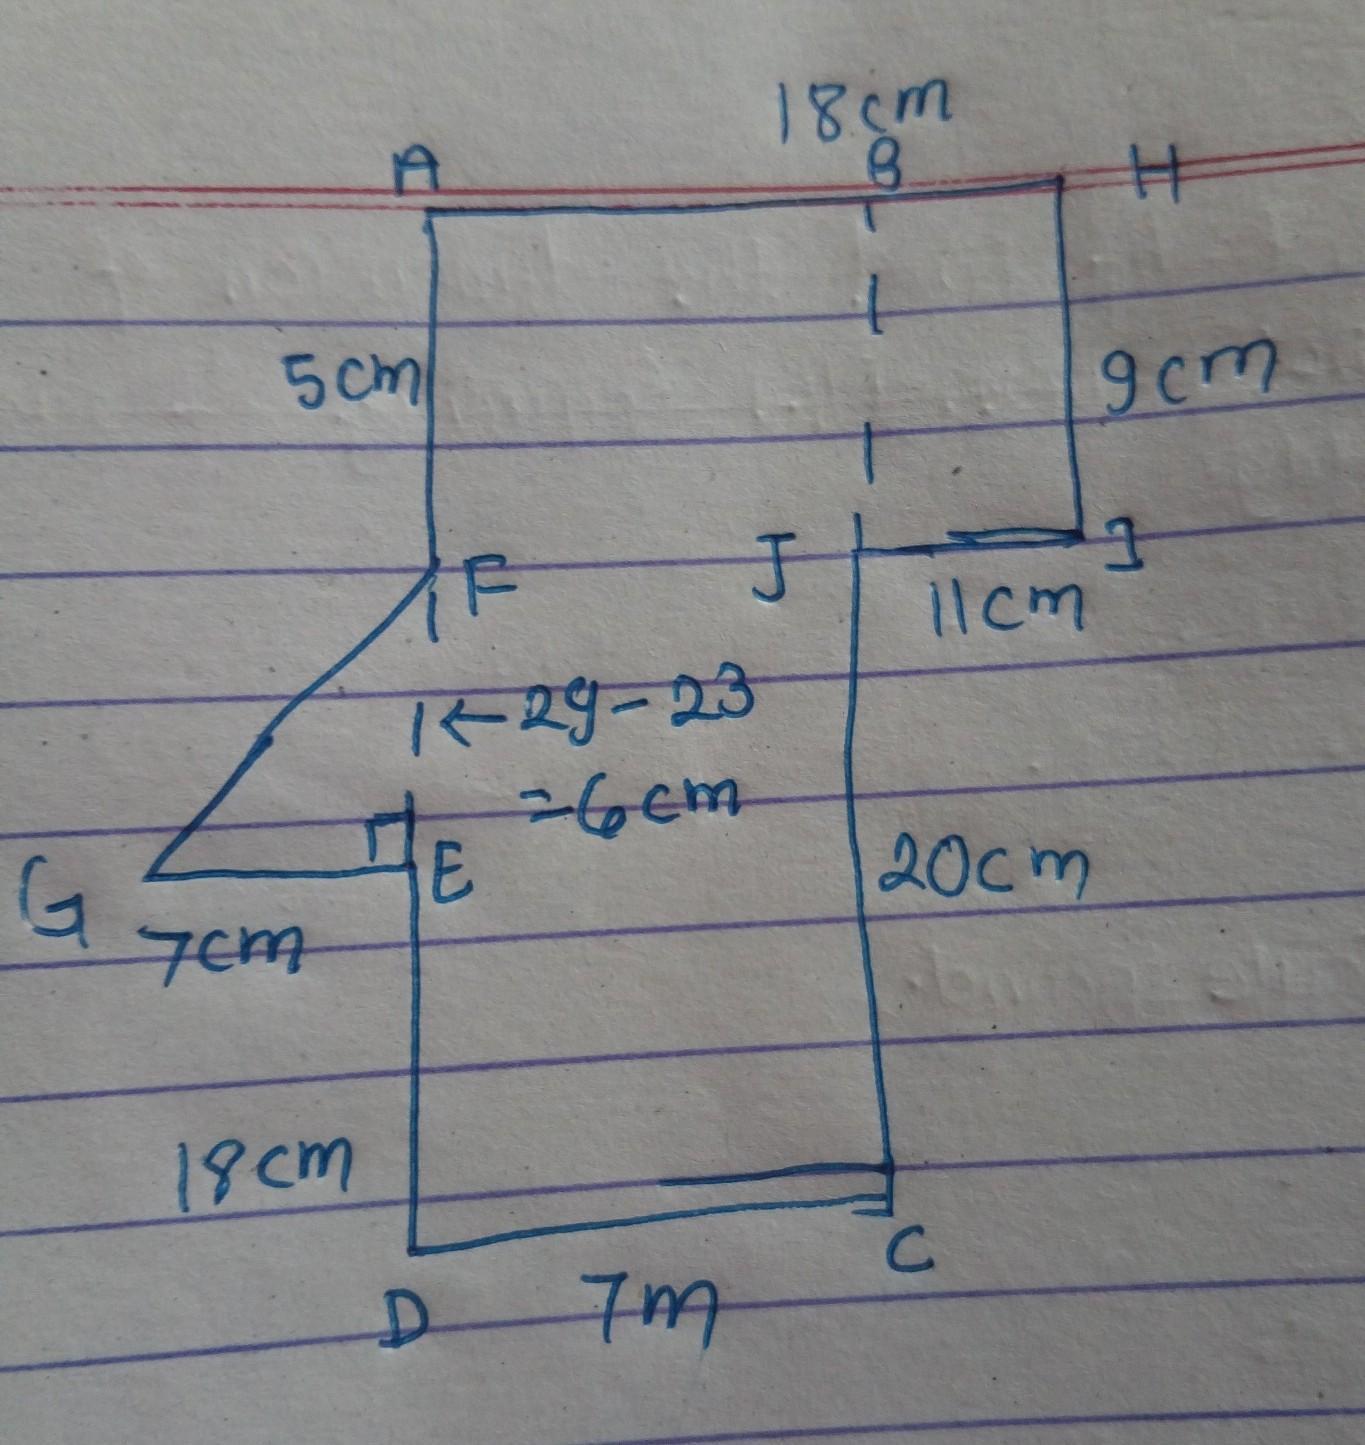 18cm
A B H
5cm 9cm
F J I
11cm
←29-23
=6cm
E 20cm
G
7cm
18cm
C
D 7m